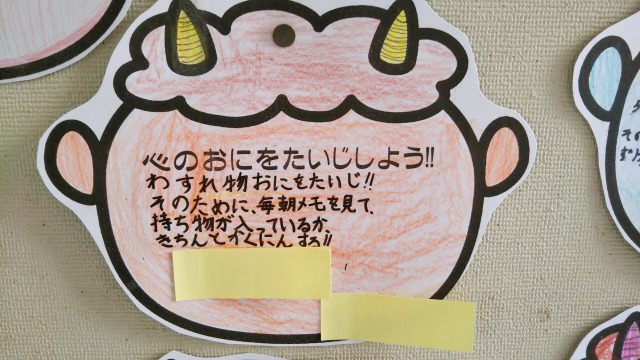 心のおにをたいじしよう!!
わすれ物おにをたいじ!!
そのために、毎朝メモを見て、
持ち物が入っているか、
きちんとかくにんする!!